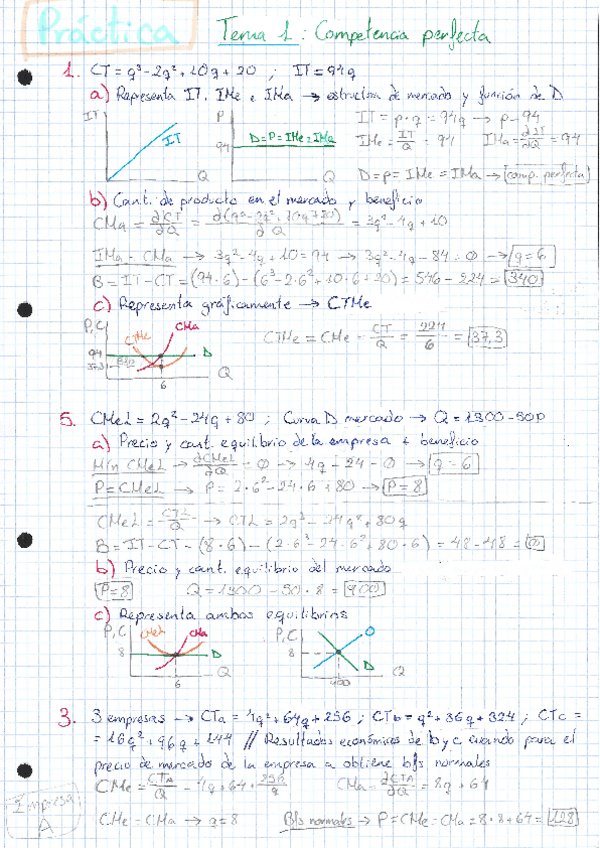 Práctica Tema 1: Competencia perfecta
1. CT = q³-2q²+10q+20 ; IT = 94q
a) Representa IT, IMe e IMa → estructura de mercado y función de D
IT = p·q = 94q → p = 94
IT
P
IT
94
D=P=IMe=IMa
Q
Q
IMe = IT/Q = 94 IMa = ∂IT/∂Q = 94
D=p=IMe=IMa → comp. perfecta
b) Cant. de producto en el mercado y beneficio
CMa = ∂CT/∂Q = = 3q²-4q+10
IMa = CMa → 3q²-4q+10=94 → 3q²-4q-84=0 → q=6
B = IT-CT = (94·6)-(6³-2·6²+10·6+20) = 546-224 = 340
c) Representa gráficamente → CTMe
P,C
CTMe
CMa
94
D
6
Q
CTMe = CMe = CT/Q = 224/6 = 37,3
5. CMeL = 2q²-24q+80 ; Curva D mercado → Q = 1300-50p
a) Precio y cant. equilibrio de la empresa + beneficio
Min CMeL → ∂CMeL/∂Q = 0 → 4q-24=0 → q=6
P=CMeL → P = 2·6²-24·6+80 → P=8
CMeL = CTL/Q → CTL = 2q³-24q²+80q
B = IT-CT = (8·6)-(2·6³-24·6²+80·6) = 48-48 = 0
b) Precio y cant. equilibrio del mercado
P=8 Q = 1300-50·8 = 900
c) Representa ambos equilibrios
P,C
CMeL
CMa
8
D
6
Q
P,C
O
8
D
900
Q
3. 3 empresas → CTa = 4q²+64q+256 ; CTb = q²+36q+324 ; CTc =
= 16q²+96q+144 // Resultados económicos de b y c cuando para el
precio de mercado de la empresa a obtiene bfs normales
CMe = CTA/Q = 4q+64+256/q CMa = ∂CTA/∂Q = 8q+64
Empresa A
CMe = CMa → q=8 Bfs normales → P=CMe=CMa = 8·8+64 = 128